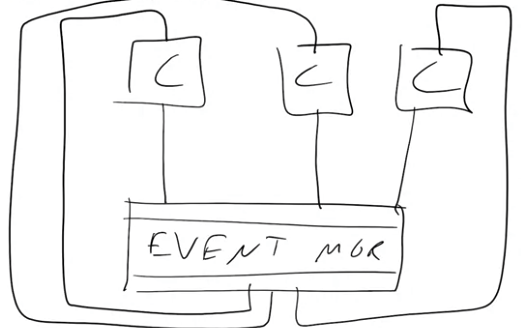 C C C
EVENT MGR